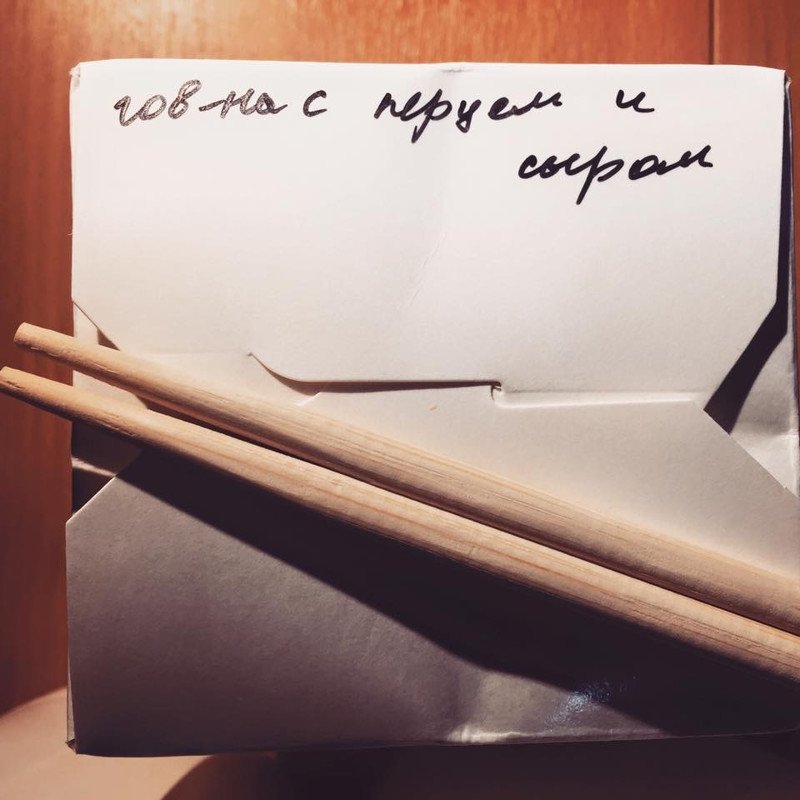 гов-на с перцем и
сыром